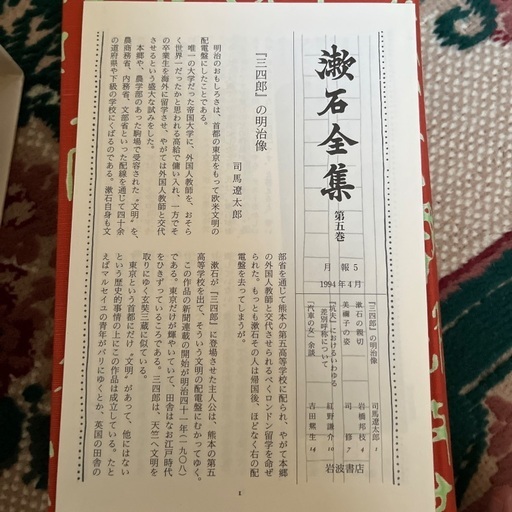 漱石全集
第五巻
月報5
1994年4月
『三四郎』の明治像 司馬遼太郎 1
漱石の親切 岩橋邦枝 4
美禰子の姿 司修 7
『坑夫』におけるいわゆる
差別呼称について 紅野謙介 10
「汽車の女」余談 吉田凞生 14
岩波書店
『三四郎』の明治像
司馬遼太郎
明治のおもしろさは、首都の東京をもって欧米文明の
配電盤にしたことである。
唯一の大学だった帝国大学に、外国人教師を、おそら
く世界一だったかと思われる高給で傭い入れ、一方でそ
の卒業生を海外に留学させ、やがては外国人教師と交代
させるという盛大な試みをした。
本郷や、農学部のあった駒場で受容された〝文明〟を、
農商務省、内務省、文部省といった配線を通じて四十余
の道府県や下級の学校にくばるのである。漱石自身も文
部省を通じて熊本の第五高等学校に配られ、やがて本郷
の外国人教師と交代させられるべくロンドン留学を命ぜ
られた。もっとも漱石その人は帰国後、ほどなく右の配
電盤を去ってしまうが。
漱石が『三四郎』に登場させた主人公は、熊本の第五
高等学校を出て、そういう文明の配電盤にむかってゆく。
この作品の新聞連載の開始が明治四十一年（一九〇八）
である。東京だけが輝やいていて、田舎はなお江戸時代
をひきずっているころである。三四郎は、天竺へ文明を
取りにゆく玄奘三蔵に似ている。
東京という首都にだけ〝文明〟があって、他にはない
という歴史的事情の上にこの作品は成立している。たと
えばマルセイユの青年がパリにゆくとか、英国の田舎の
1